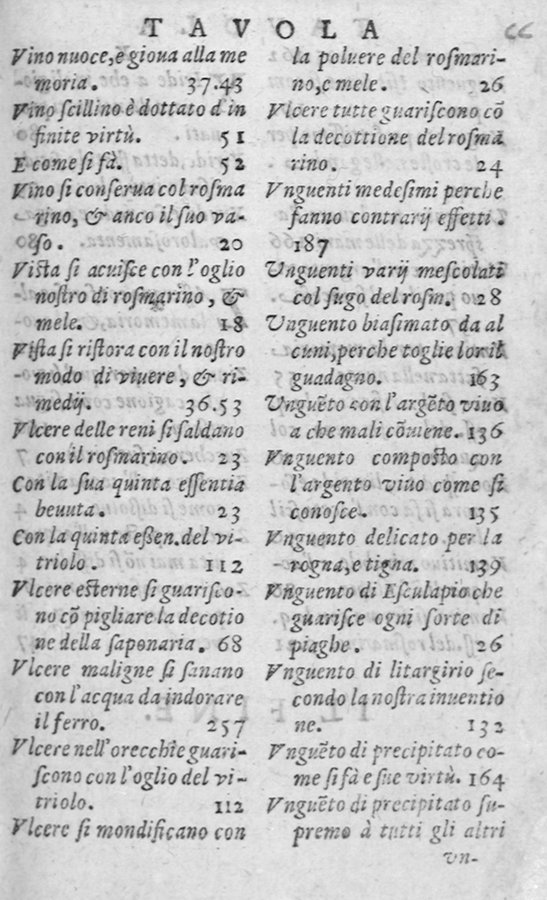 TAVOLA
66
Vino nuoce, e gioua alla me
moria. 37.43
Vino scillino è dottato d'in
finite virtù. 51
E come si fà. 52
Vino si conserua col rosma
rino, & anco il suo va-
so. 20
Vista si acuisce con l'oglio
nostro di rosmarino, &
mele. 18
Vista si ristora con il nostro
modo di viuere, & ri-
medij. 36.53
Vlcere delle reni si saldano
con il rosmarino. 23
Con la sua quinta essentia
beuuta. 23
Con la quinta essen. del vi-
triolo. 112
Vlcere esterne si guarisco-
no cõ pigliare la decotio
ne della saponaria. 68
Vlcere maligne si sanano
con l'acqua da indorare
il ferro. 257
Vlcere nell'orecchie guari-
scono con l'oglio del vi-
triolo. 112
Vlcere si mondificano con
la poluere del rosmari-
no, e mele. 26
Vlcere tutte guariscono cõ
la decottione del rosma
rino. 24
Vnguenti medesimi perche
fanno contrarij effetti.
187
Vnguenti varij mescolati
col sugo del rosm. 28
Vnguento biasimato da al
cuni, perche toglie lor il
guadagno. 163
Vnguẽto con l'argẽto viuo
a che mali cõuiene. 136
Vnguento composto con
l'argento viuo come si
conosce. 135
Vnguento delicato per la
rogna, e tigna. 139
Vnguento di Esculapio che
guarisce ogni sorte di
piaghe. 26
Vnguento di litargirio se-
condo la nostra inuentio
ne. 132
Vnguẽto di precipitato co-
me si fà e sue virtù. 164
Vnguẽto di precipitato su-
premo à tutti gli altri
vn-